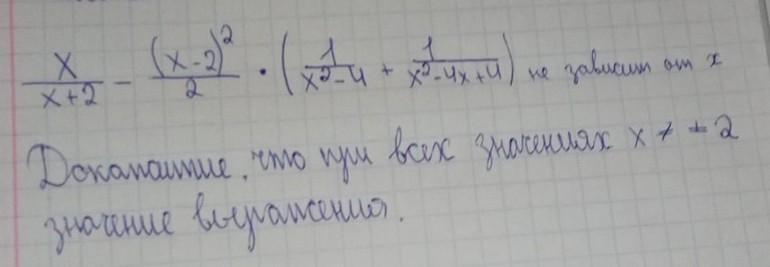 x/(x+2) − (x-2)²/2 · (1/(x²-4) + 1/(x²-4x+4)) не зависит от x
Докажите, что при всех значениях x ≠ ± 2
значение выражения.